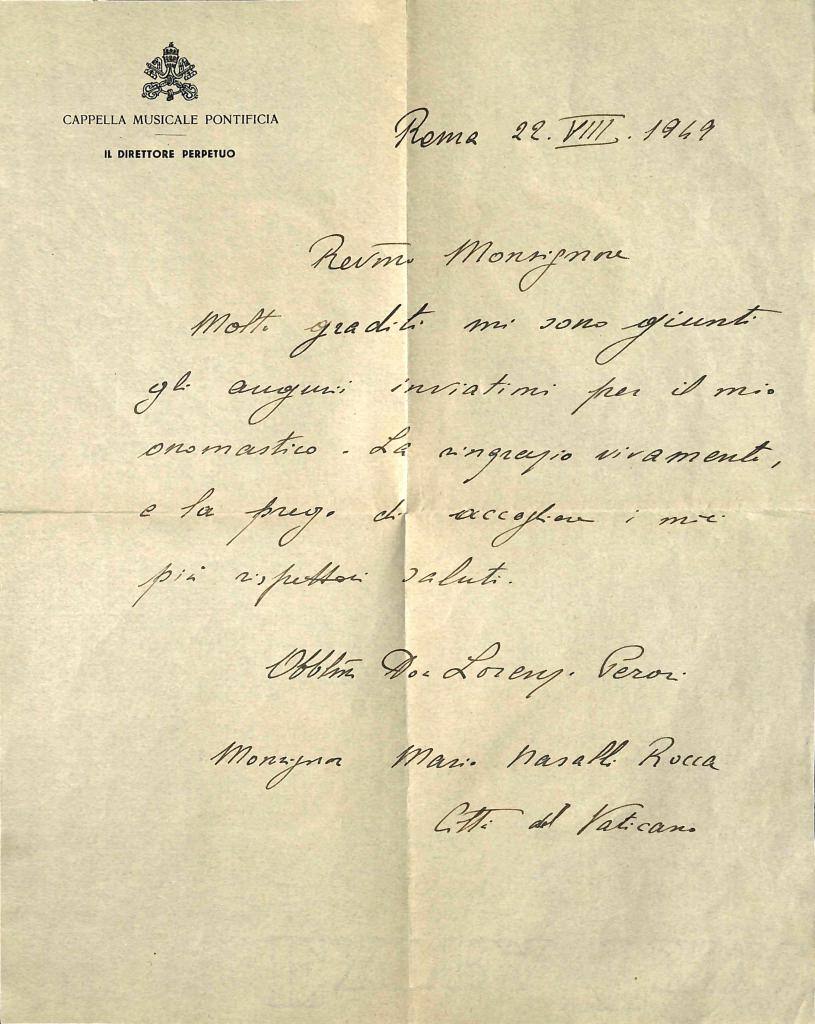 CAPPELLA MUSICALE PONTIFICIA
IL DIRETTORE PERPETUO
Roma 22. VIII. 1949
Rev̅mo Monsignore
Molto graditi mi sono giunti
gli auguri inviatimi per il mio
onomastico. La ringrazio vivamente,
e la prego di accogliere i miei
più rispettosi saluti.
Obblmo Don Lorenzo Perosi
Monsignor Mario Nasalli Rocca
Città del Vaticano